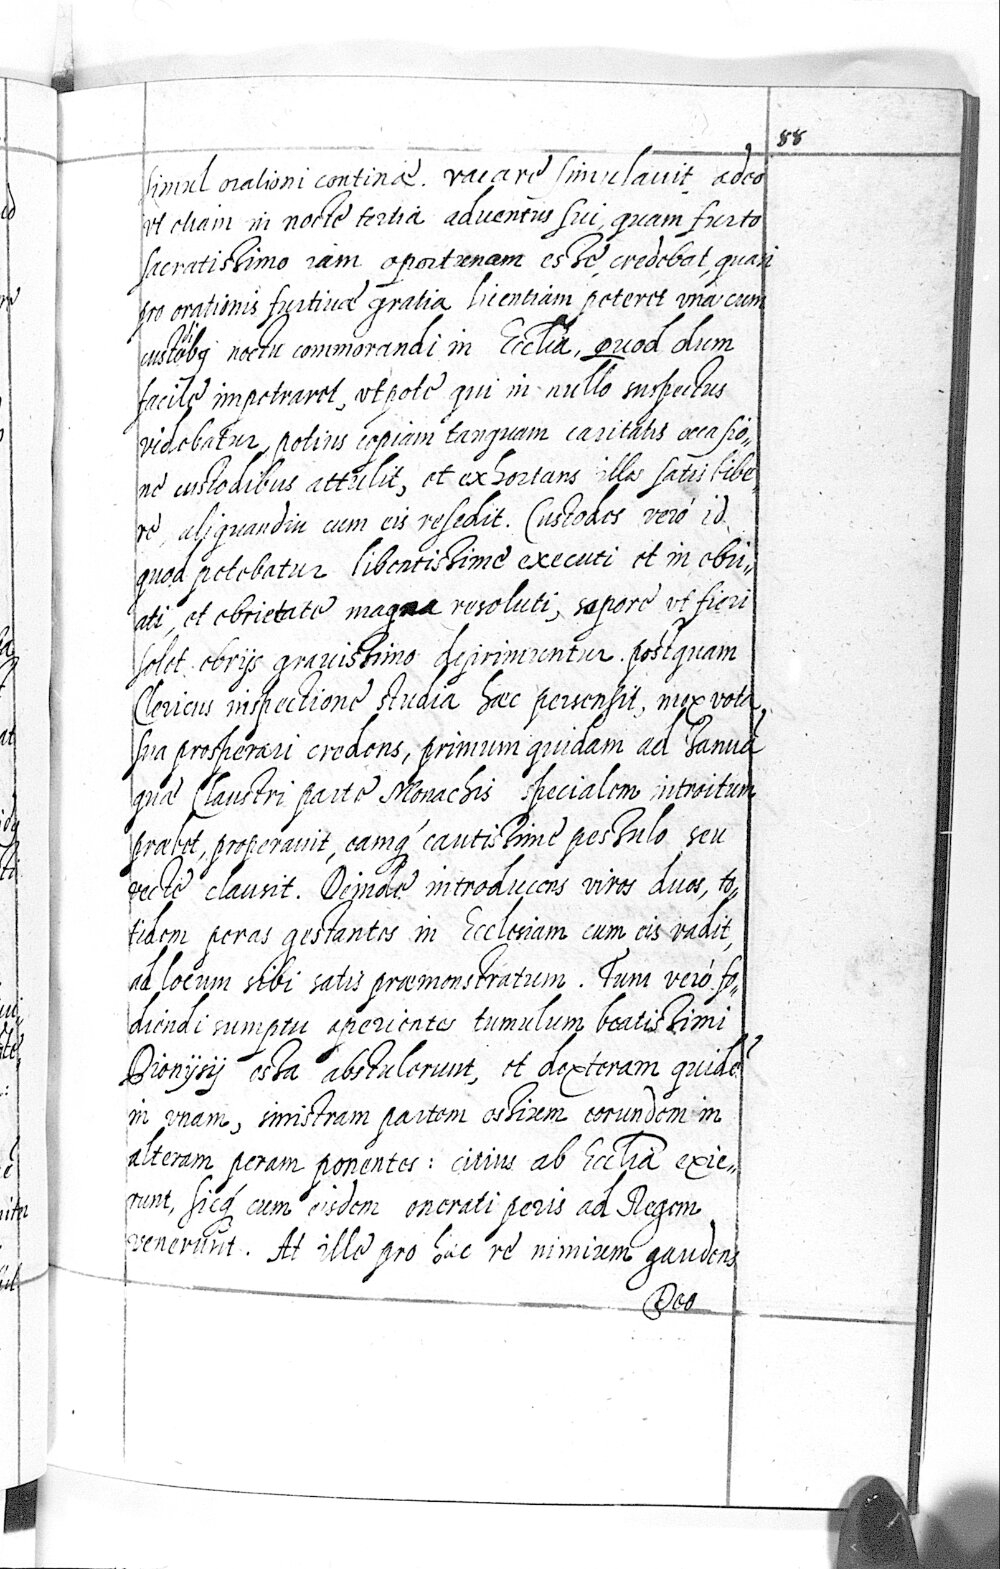 88
simul orationi continæ. vacare simulavit, adeo
vt etiam in nocte tertia adventus sui, quam furto
sacratissimo iam oportunam esse credebat, quasi
pro orationis furtivæ gratia licentiam peteret vna cum
custodibq noctu commorandi in Ecclia, quod dum
facile impetraret, vtpote qui in nullo suspectus
videbatur, potius copiam tanquam caritatis occasio,,
ne custodibus attulit, et exhortans illos satis bibe,,
re, aliquandiu cum eis resedit. Custodes veró id
quod petebatur libentissime executi et in ebri,,
ati, et ebrietate magna resoluti, sopore vt fieri
solet ebrijs gravissimo deprimuntur. postquam
Clericus inspectione studia hæc persensit, mox vota
sua prosperari credens, primum quidam ad Ianuã
quæ Claustri parte Monachis specialem introitum
præbet, properavit, eamq́ cautissime pessulo seu
vecte clausit. Deinde introducens viros duos, to,,
tidem peras gestantes in Ecclesiam cum eis vadit
ad locum sibi satis præmonstratum. Tum veró fo,,
diendi sumptu aperientes tumulum beatissimi
Dionijsij ossa abstulerunt, et dexteram quidẽ
in vnam, sinistram partem ossium eorundem in
alteram peram ponentes: citius ab Ecclia exie,,
runt, sicq́ cum eisdem onerati peris ad Regem
venerunt. At ille pro hac re nimium gaudens
Deo